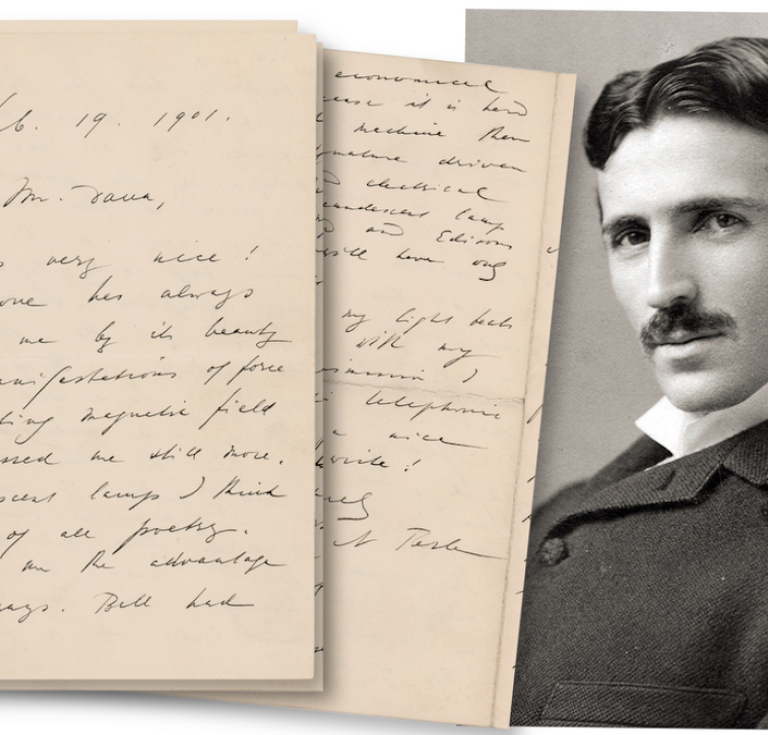 b. 19. 1901.
Mr. Dana,
s very nice!
ove has always
me by its beauty
anifestations of force
ting magnetic field
ssed me still more.
scent lamps I think
of all poetry.
me the advantage
ays. Bell had
economical
ause it is hard
machine then
mature driven
electrical
candescent lamp
and Edisons
will have only
my light beats
with my
) 
telephonic
a nice
write!
N Tesla